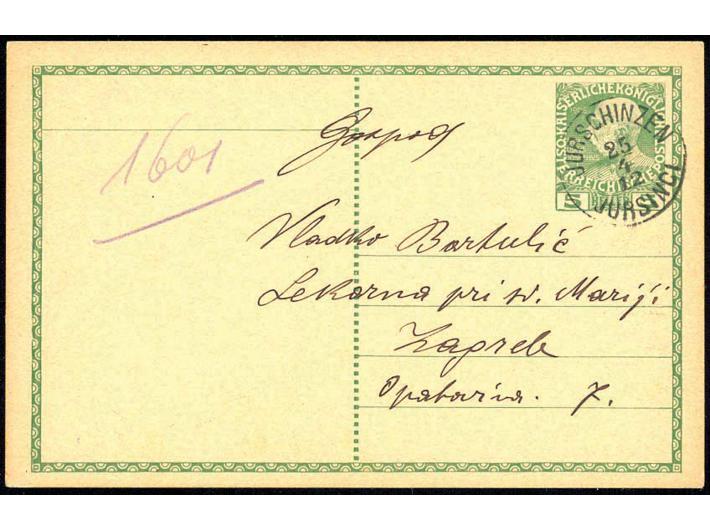 KAISERLICHEKÖNIGLICHE
JURSCHINZEN
25
4
12
JURSINCI
5
1601
Gospod
Vladko Bartulić
Lekarna pri sv. Mariji
Zagreb
Opatovina. 7.